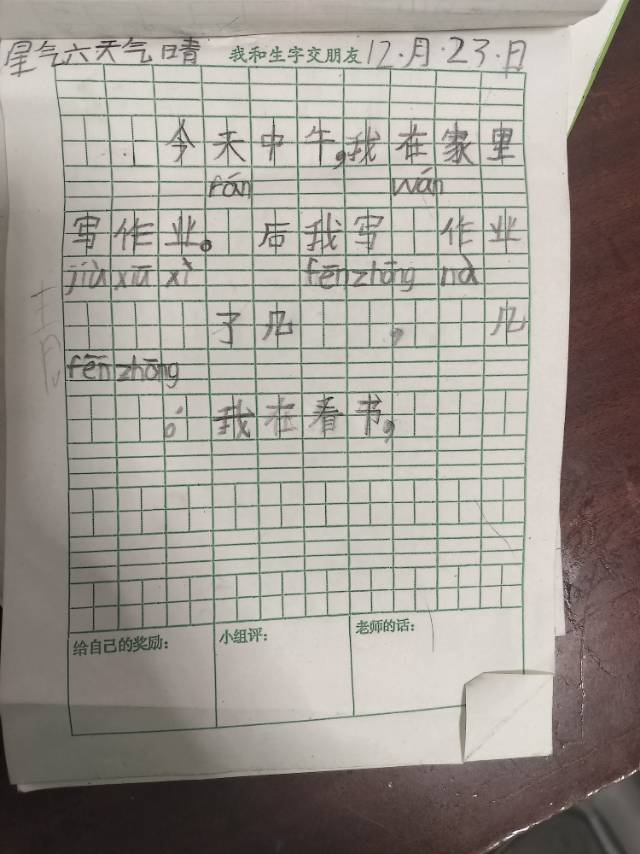 星气六天气晴 我和生字交朋友 12.月.23.日
今天中午,我在家里
rán wán
写作业。 后我写 作业
jiù xiū xī fēn zhōng nà
了几 , 几
fēn zhōng
。我在看书,
给自己的奖励: 小组评: 老师的话: